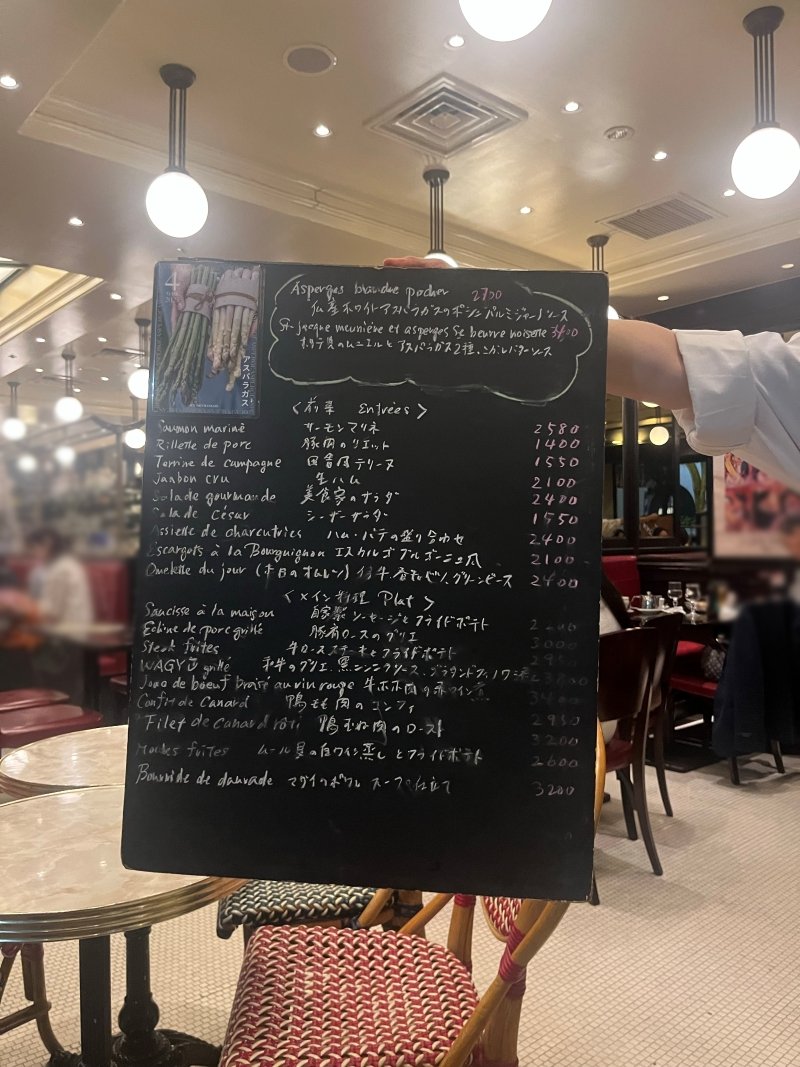 4
アスパラガス
Asperges blanche pocher 2700
仏産ホワイトアスパラガスのポシェ パルミジャーノソース
St-jacque meunière et asperges se beurre noisette
ホタテ貝のムニエルとアスパラガス2種、こがしバターソース
<前菜 Entrées>
Saumon mariné サーモンマリネ 2580
Rillette de porc 豚肉のリエット 1400
Terrine de campagne 田舎風テリーヌ 1550
Janbon cru 生ハム 2100
Salade gourmande 美食家のサラダ 2400
Salade César シーザーサラダ 1550
Assiette de charcutries ハム・パテの盛り合わせ 2400
Escargots à la Bourguignon エスカルゴ ブルゴーニュ風 2100
Omelette du jour (本日のオムレツ) グリーンピース 2400
<メイン料理 Plat>
Saucisse à la maison 自家製ソーセージとフライドポテト
Echine de porc grillé 豚肩ロースのグリエ 3000
Steak frites 牛ロースステーキとフライドポテト
WAGYU grillé 和牛のグリエ 黒ニンニクソース、
Joue de boeuf braisé au vin rouge 牛ホホ肉の赤ワイン煮
Confit de Canard 鴨もも肉のコンフィ 2950
Filet de canard rôti 鴨むね肉のロースト 3200
Moules frites ムール貝の白ワイン蒸しとフライドポテト 2600
Bourride de daurade マダイのブリッド スープ仕立て 3200